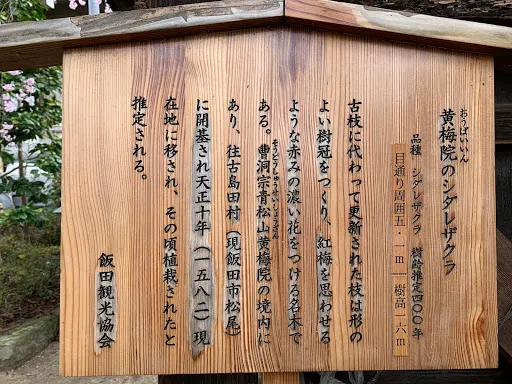 黄梅院のシダレザクラ
おうばいいん
品種 シダレザクラ 樹齢推定四〇〇年
目通り周囲五・一m 樹高一六m
古枝に代わって更新された枝は形の
よい樹冠をつくり、紅梅を思わせる
ような赤みの濃い花をつける名木で
ある。曹洞宗青松山黄梅院の境内に
そうとうしゅうせいしょうざん
あり、往古島田村（現飯田市松尾）
に開基され天正十年（一五八二）現
在地に移され、その頃植栽されたと
推定される。
飯田観光協会